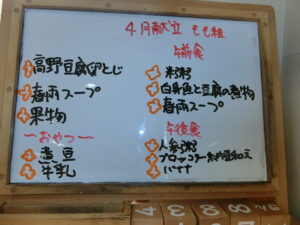 4月献立 もも組
高野豆腐卵とじ
春雨スープ
果物
〜おやつ〜
煮豆
牛乳
午前食
米粥
白身魚と豆腐の煮物
春雨スープ
午後食
人参粥
ブロッコリー納豆和え
バナナ
4 3 8 8